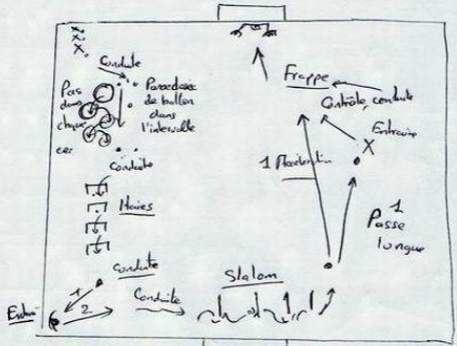 x
x
x
Conduite
Pas
dans
chaque
cer
Passe de
de ballon
dans
l'intervalle
Conduite
Haies
Conduite
1
2
Conduite
Slalom
Frappe
Contrôle, conduite
Entraine
X
1
Passe
longue